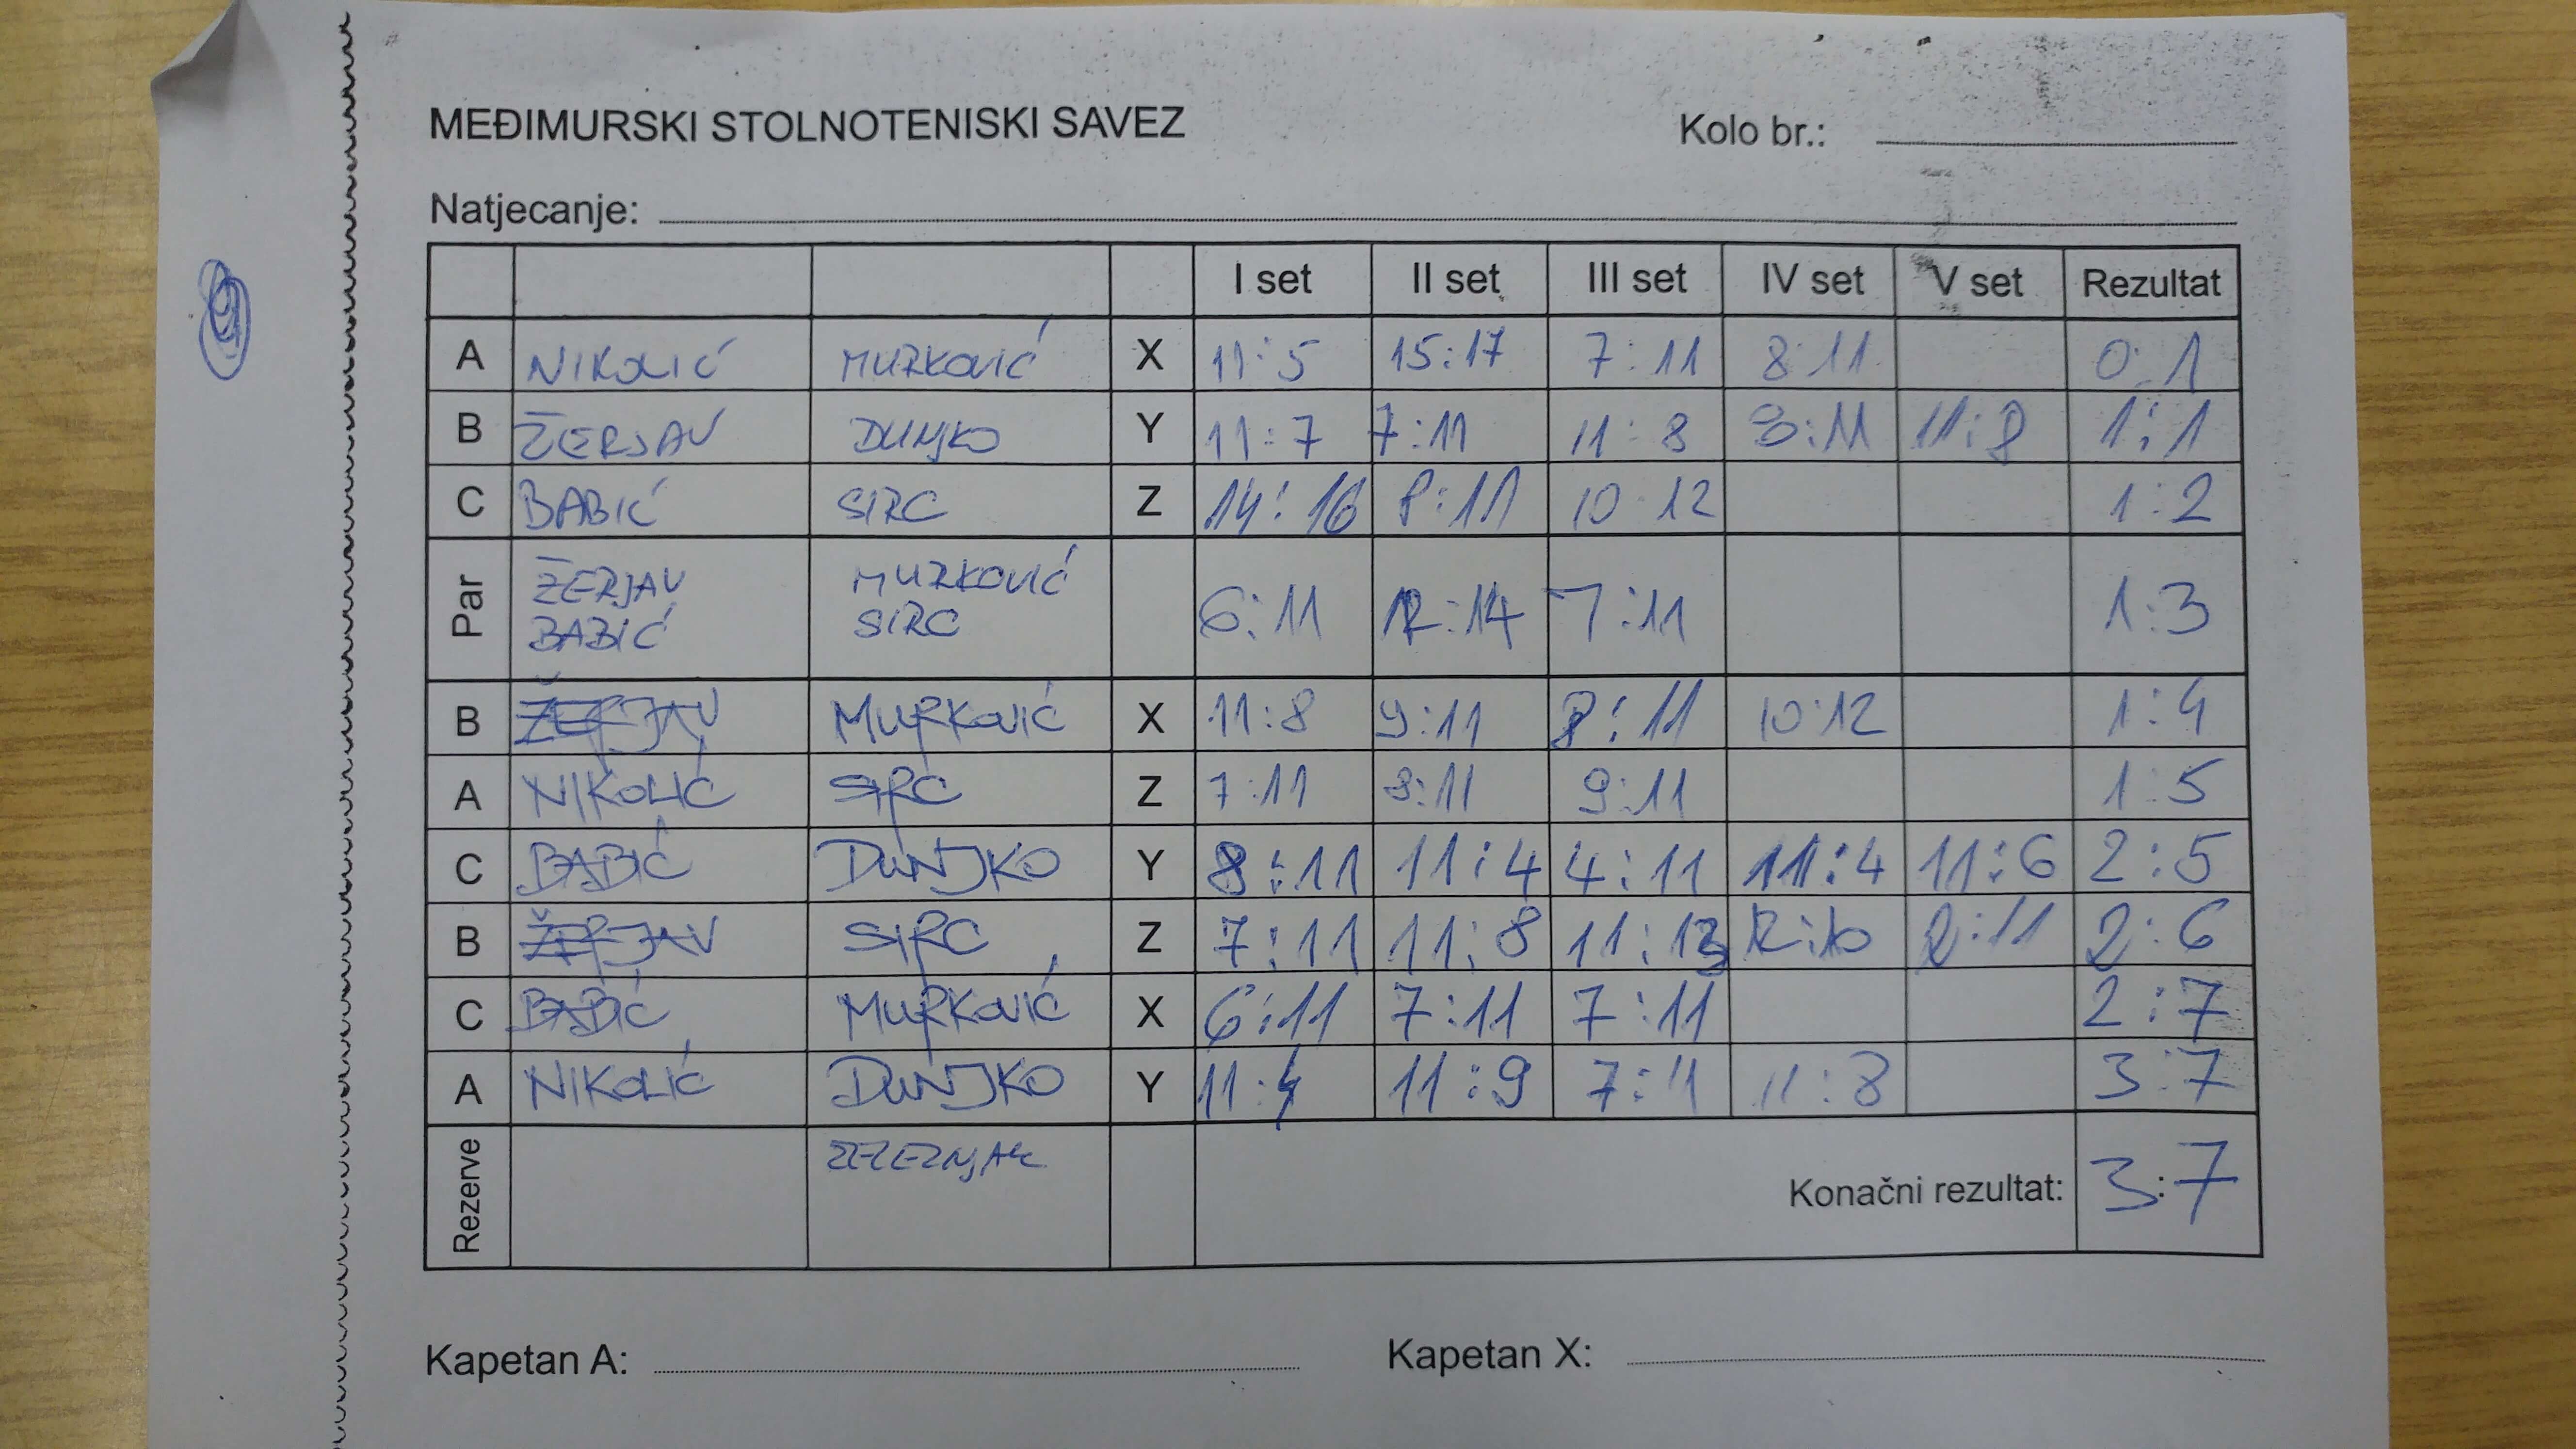 MEĐIMURSKI STOLNOTENISKI SAVEZ Kolo br.:
Natjecanje:
I set II set III set IV set V set Rezultat
A NIKOLIĆ MURKOVIĆ X 11:5 15:17 7:11 8:11 0:1
B ŽERJAV DUNJKO Y 11:7 7:11 11:8 8:11 11:8 1:1
C BABIĆ SIRC Z 14:16 8:11 10:12 1:2
Par ŽERJAV BABIĆ MURKOVIĆ SIRC 6:11 12:14 7:11 1:3
B ŽERJAV MURKOVIĆ X 11:8 9:11 8:11 10:12 1:4
A NIKOLIĆ SIRC Z 7:11 8:11 9:11 1:5
C BABIĆ DUNJKO Y 8:11 11:4 4:11 11:4 11:6 2:5
B ŽERJAV SIRC Z 7:11 11:8 11:13 12:10 2:11 2:6
C BABIĆ MURKOVIĆ X 6:11 7:11 7:11 2:7
A NIKOLIĆ DUNJKO Y 11:4 11:9 7:11 11:8 3:7
Rezerve Konačni rezultat: 3:7
Kapetan A: Kapetan X: